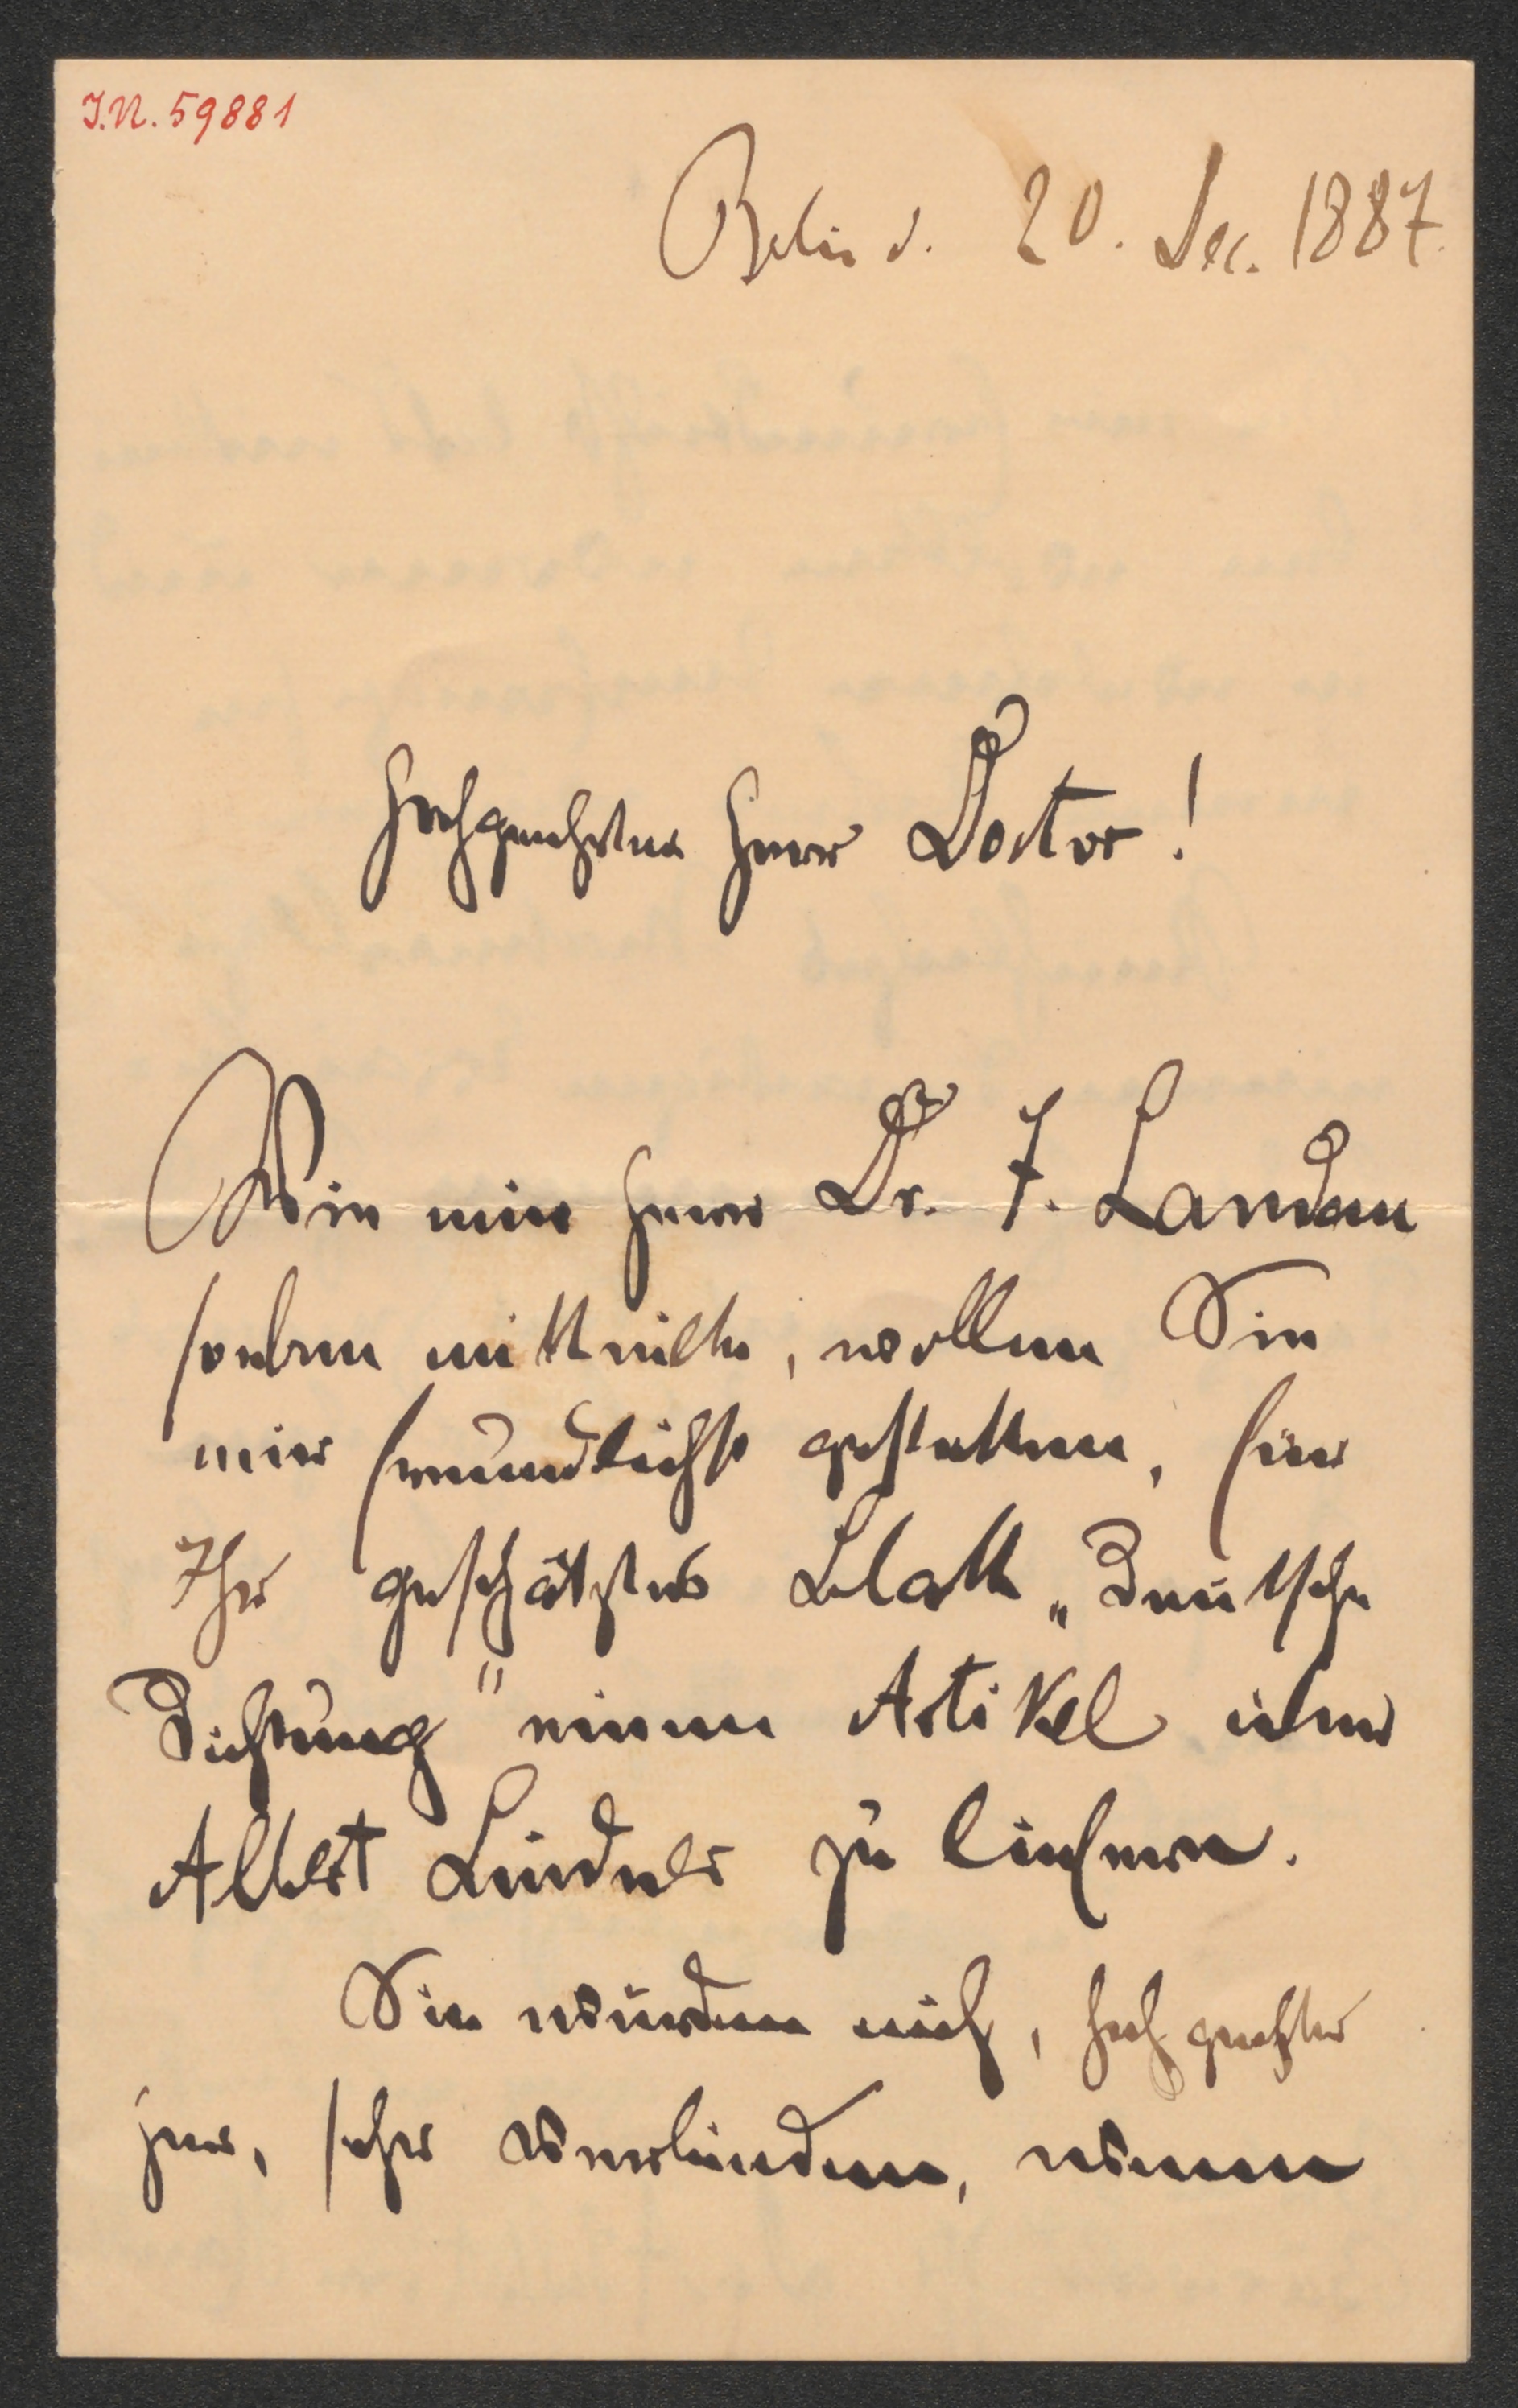 I.N. 59881
Berlin d. 20. Dec. 1887.
Hochgeehrter Herr Doctor!
Wie mir Herr Dr. J. Landau
soeben mittheilte, wollen Sie
mir freundlichst gestatten, für
Ihr geschätztes Blatt „Deutsche
Dichtung" einen Artikel über
Albert Lindner zu liefern.
Sie würden mich, hochgeehrter
Herr, sehr verbinden, wenn